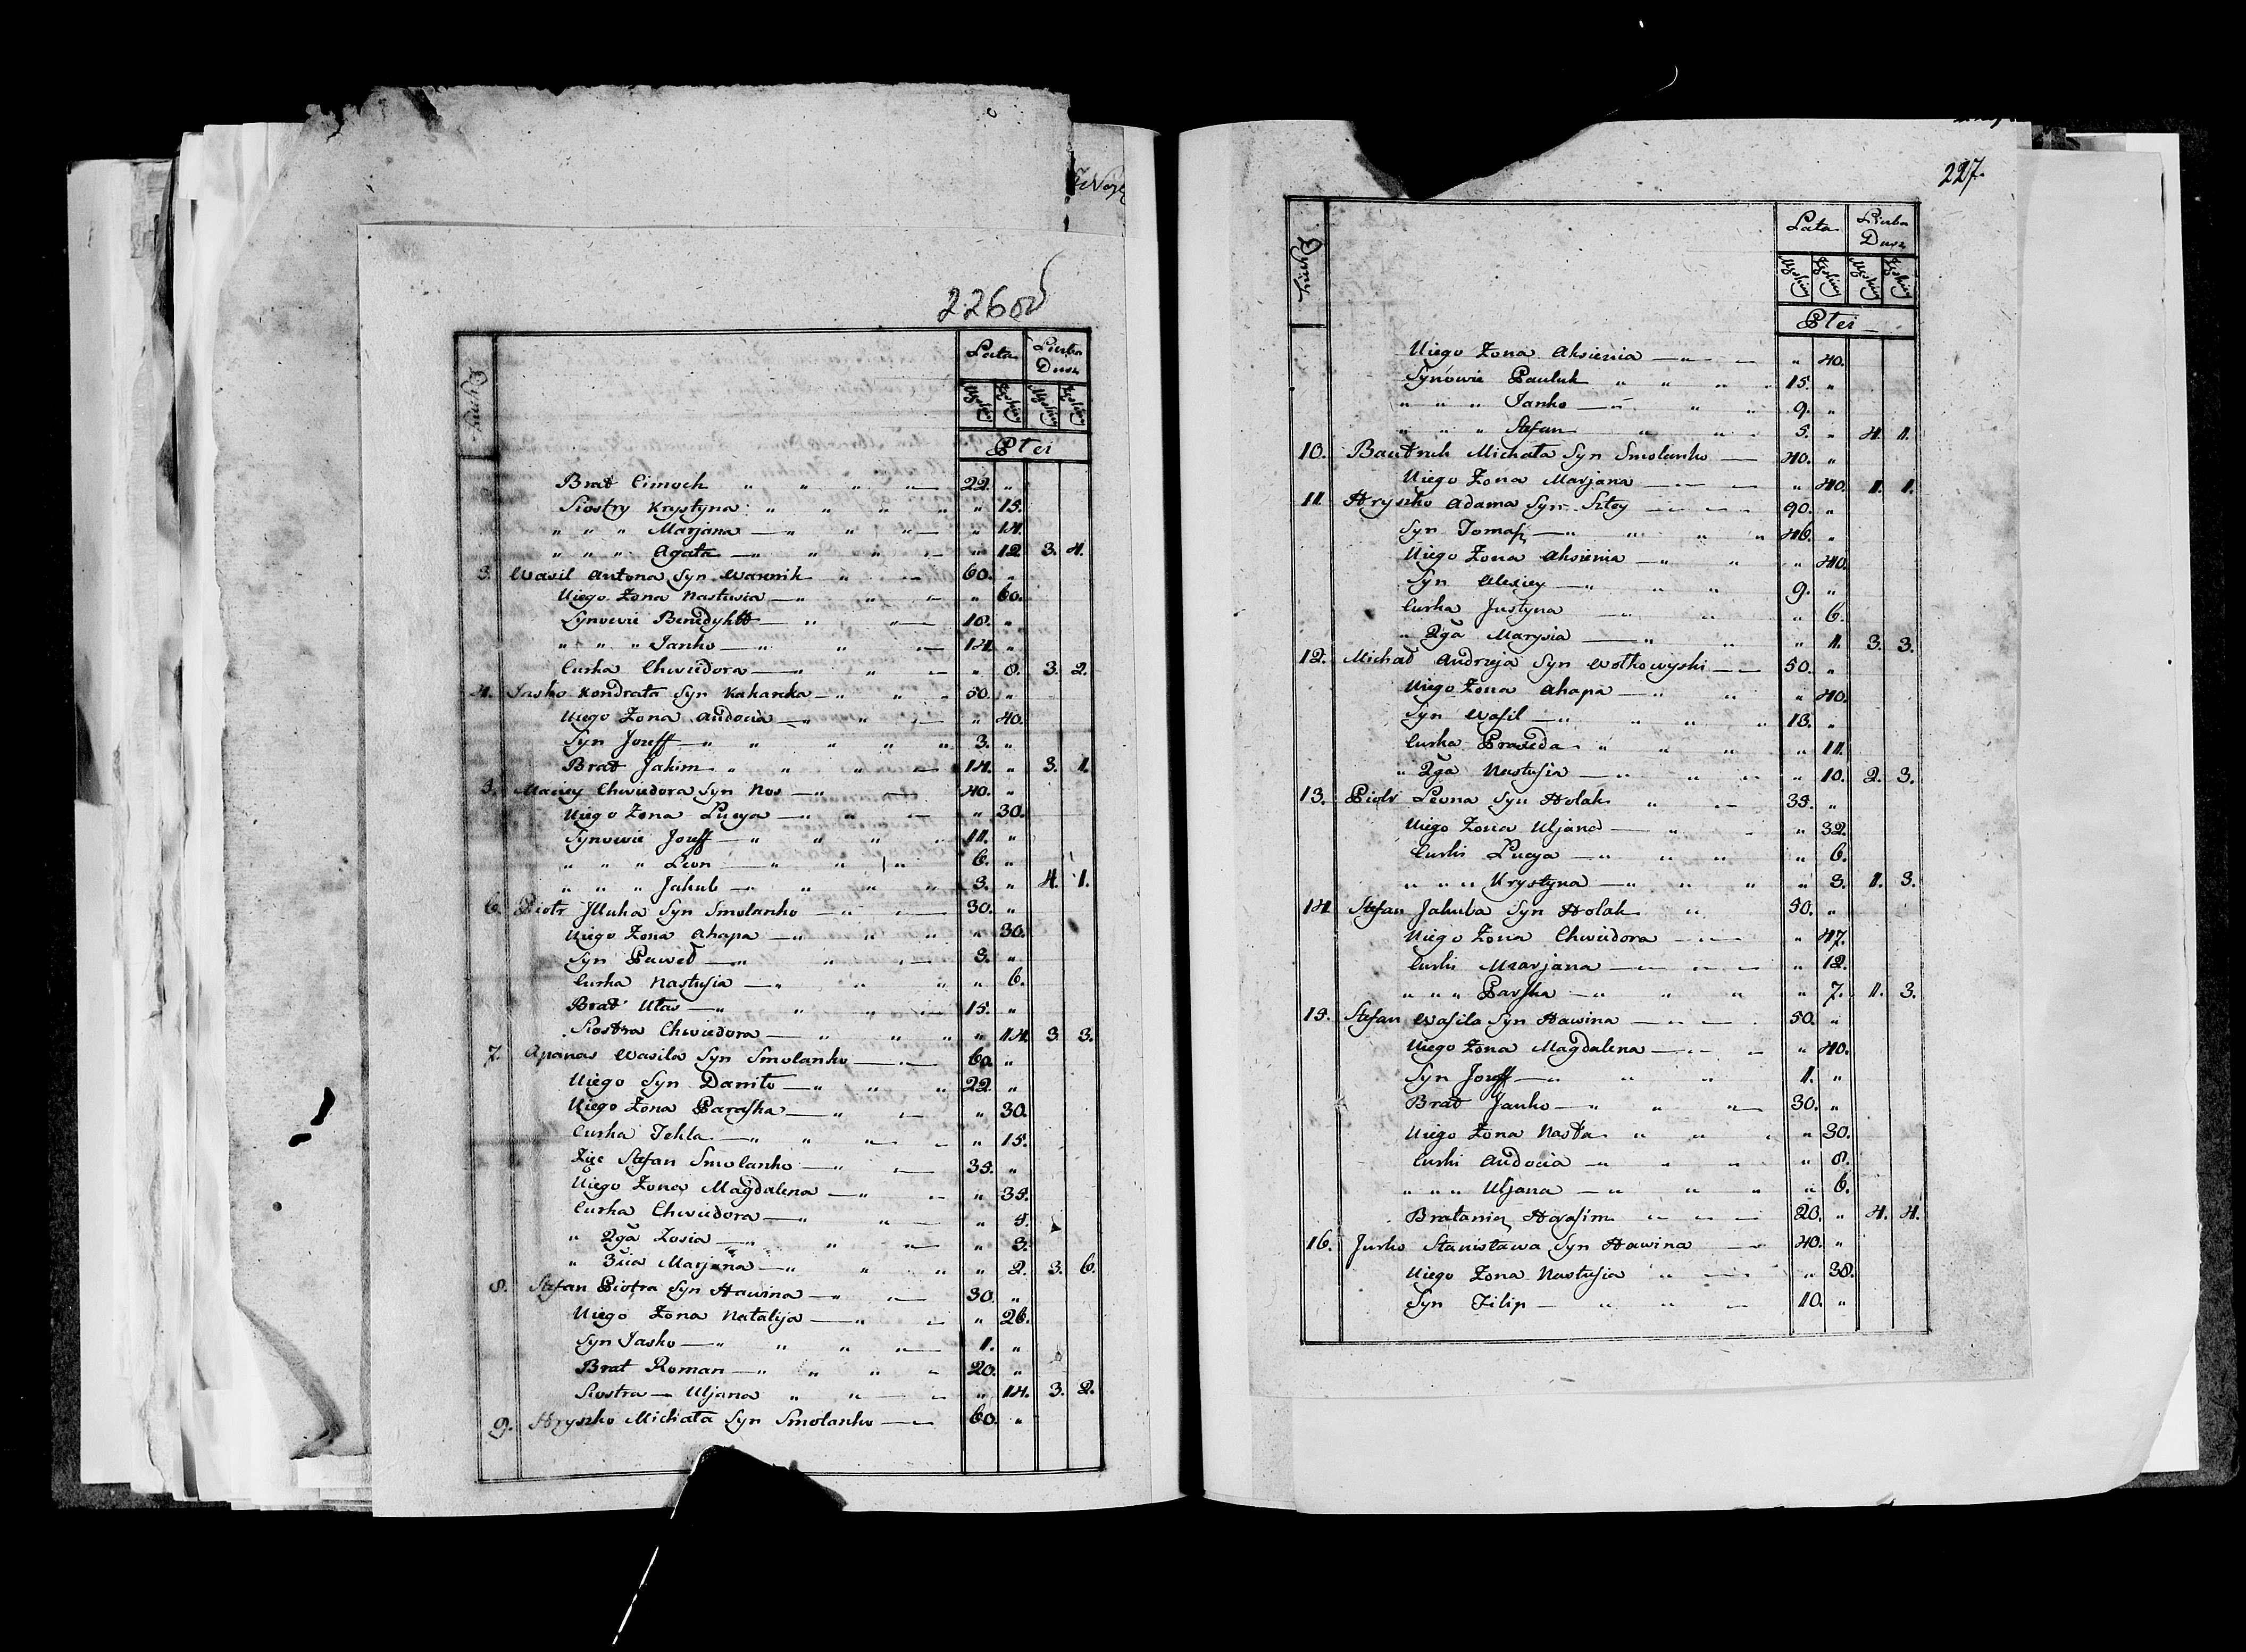 226 od
Dymy
Lata
Liczba Dusz
Męskiey
Żeńskiey
Męskiey
Żeńskiey
Płci
Brat Cimoch " " " " 22. "
Siostry Krystyna " " " " " 15.
" " " Marjana " " " " 14.
" " " Agata " " " " 12. 3. 4.
3. Wasil Antona Syn Warnik " 60. "
Uiego Żona Nastusia " " " 60.
Synowie Benedykt " " 18. "
" " " Janko " " " 14. "
Curka Chwiedora " " " 8. 3. 2.
4. Jasko Kondrata Syn Kakareka " " " 50. "
Uiego Żona Audocia " " " 40.
Syn Jozeff " " " " " 3. "
Brat Jakim " " " 14. " 3. 1.
5. Maciey Chwiedora Syn Nos " 40. "
Uiego Żona Lucya " " " 30.
Synowie Jozeff " " " " 11. "
" " " Leon " " " 6. "
" " " Jakub " " " " 3. " 4. 1.
6. Piotr Illuka Syn Smolanko " 30. "
Uiego Żona Ahapa " " " " 30.
Syn Paweł " " " 3. "
Curka Nastusia " " " " 6.
Brat Ułas " " " 15. "
Siostra Chwiedora " " " " 14. 3. 3.
7. Apanas Wasila Syn Smolanko 60. "
Uiego Syn Daniło " " " 22. "
Uiego Żona Paraska " " 30.
Curka Tekla " " " " 15.
Zięc Stefan Smolanko " 35. "
Uiego Żona Magdalena " " 35.
Curka Chwiedora " " " 5.
" 2ga Zosia " " " " 3.
" 3cia Marjana " " " " 2. 3. 6.
8. Stefan Piotra Syn Hawina " 30. "
Uiego Żona Natalija " " 26.
Syn Jasko " " " " 1. "
Brat Roman " " " 20. "
Siostra Uljana " " " 14. 3. 2.
9. Hryszko Michała Syn Smolanko 60. "
227.
Dymy
Lata
Liczba Dusz
Męskiey
Żeńskiey
Męskiey
Żeńskiey
Płci
Uiego Żona Aksienia " " 40.
Synowie Pauluk " " " " 15. "
" " " Janko " " " 9. "
" " " Stefan " " " 5. " 4. 1.
10. Bautruk Michała Syn Smolanko 40. "
Uiego Żona Marjana " 40. 1. 1.
11. Hryszko Adama Syn Sztey 90. "
Syn Tomasz " " " " 46. "
Uiego Żona Aksienia " " " 40.
Syn Alexiey " " " 9. "
Curka Justyna " " " 6.
" 2ga Marysia " " " 1. 3. 3.
12. Michał Andrzeja Syn Wołkowyski 50. "
Uiego Żona Ahapa " " " 40.
Syn Wasil " " " " 18. "
Curka Praxeda " " " " 11.
" 2ga Nastusia " " " " 10. 2. 3.
13. Piotr Leona Syn Holak " 35. "
Uiego Żona Uljana " " 32.
Curki Lucya " " " " 6.
" " " Krystyna " " " " 3. 1. 3.
14. Stefan Jakuba Syn Holak " 50. "
Uiego Żona Chwiedora " " 47.
Curki Marjana " " " 12.
" " " Parska " " " " 7. 1. 3.
15. Stefan Wasila Syn Hawina 50. "
Uiego Żona Magdalena " " 40.
Syn Jozeff " " " 1. "
Brat Janko " " " 30. "
Uiego Żona Nasta " " " " 30.
Curki Audocia " " " " 8.
" " " Uljana " " " " 6.
Brataniec Harasim " " 20. " 4. 4.
16. Jurko Stanisława Syn Hawina 40. "
Uiego Żona Nastusia " " 38.
Syn Filip " " 10. "